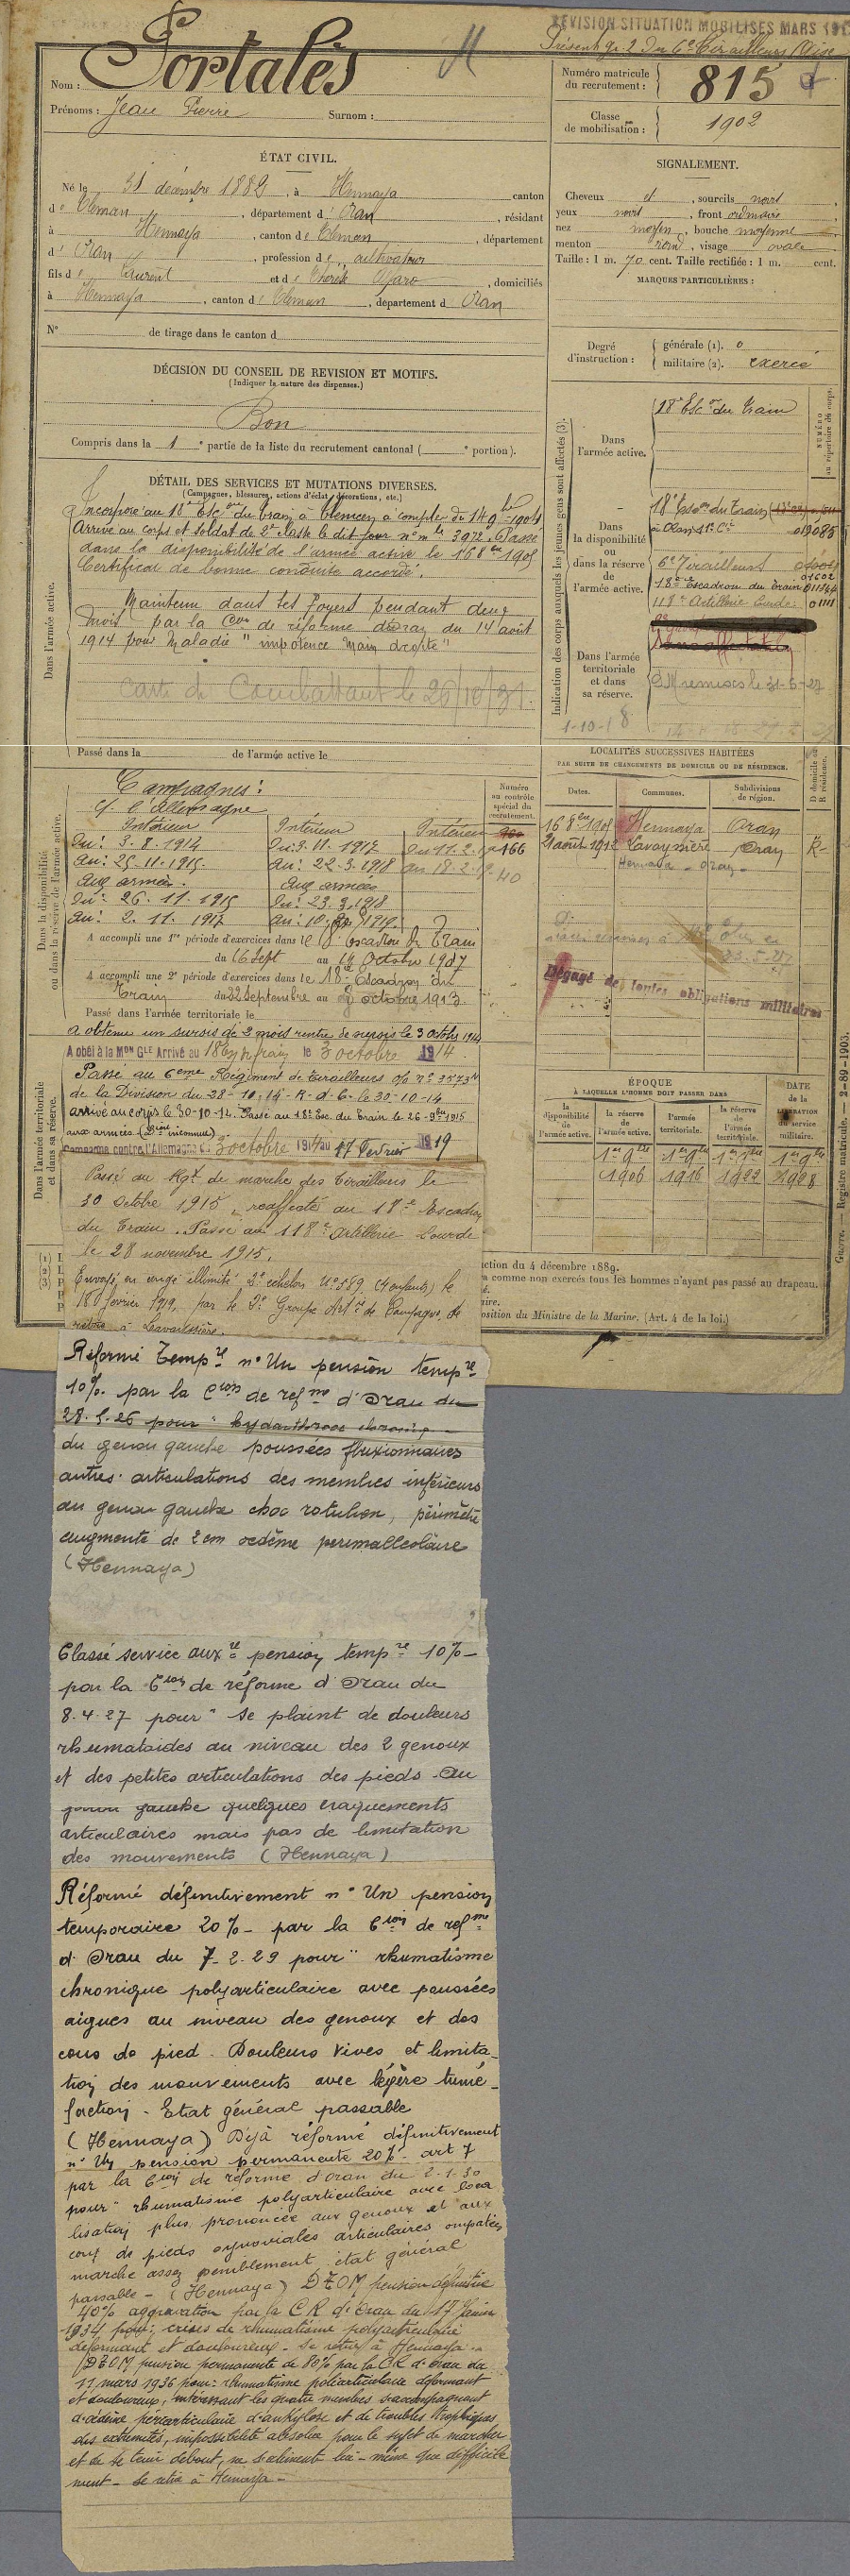 REVISION SITUATION MOBILISES MARS
Présent gr. 2 du 6e Tirailleurs
Nom : Portalès
Prénoms : Jean Pierre Surnom :
Numéro matricule du recrutement : 815
Classe de mobilisation : 1902
ÉTAT CIVIL.
Né le 31 décembre 1882, à Hennaya canton
de Tlemcen, département d'Oran, résidant
à Hennaya, canton de Tlemcen, département
d'Oran, profession de cultivateur
fils de Laurent et de Thérèse, domiciliés
à Hennaya, canton de Tlemcen, département d'Oran
N° de tirage dans le canton d
SIGNALEMENT.
Cheveux et, sourcils noirs,
yeux noirs, front ordinaire
nez moyen, bouche moyenne
menton rond, visage ovale
Taille : 1 m. 70 cent. Taille rectifiée : 1 m. cent.
MARQUES PARTICULIÈRES :
Degré d'instruction : générale (1). 0
militaire (2). exercé
DÉCISION DU CONSEIL DE REVISION ET MOTIFS.
(Indiquer la nature des dispenses.)
Bon
Compris dans la 1e partie de la liste du recrutement cantonal ( e portion).
DÉTAIL DES SERVICES ET MUTATIONS DIVERSES.
(Campagnes, blessures, actions d'éclat, décorations, etc.)
Dans l'armée active.
Incorporé au 18e Esc. on du train à Tlemcen à compter du 14 9bre 1904
Arrivé au corps et soldat de 2e classe le dit jour n° mle 3972. Passé
dans la disponibilité de l'armée active le 16 8bre 1905
Certificat de bonne conduite accordé.
Maintenu dans ses foyers pendant deux
mois par la Con de réforme d'Oran du 14 août
1914 pour Maladie "impotence Main droite"
Carte de Combattant le 26/10/31.
Passé dans la de l'armée active le
Indication des corps auxquels les jeunes gens sont affectés (3).
Dans l'armée active. 18e Esc.on du train
NUMÉRO au répertoire du corps.
Dans la disponibilité ou dans la réserve de l'armée active.
18e Escon du train
à Oran 11e Cie 019085
6e Tirailleurs
01602
18e Escadron du train 011344
118e Artillerie lourde 01111
Dans l'armée territoriale et dans sa réserve.
1-10-18
LOCALITÉS SUCCESSIVES HABITÉES
PAR SUITE DE CHANGEMENTS DE DOMICILE OU DE RÉSIDENCE.
Dates. Communes. Subdivisions de région. D domicile ou R résidence.
16 8bre 1905 Hennaya Oran
21 août 1912 Lavayssière Oran R
Hennaya - Oran -
Dégagé de toutes obligations militaires
Dans la disponibilité ou dans la réserve de l'armée active.
Numéro au contrôle spécial du recrutement.
166
40
Campagnes :
c/ l'Allemagne
Intérieur Intérieur Intérieur
Du : 3.8.1914 Du : 3.11.1917 Du 11.2.19
Au : 25.11.1915. Au : 22.3.1918 au 18.2.19
Aux armées. Aux armées
Du : 26.11.1915 Du : 23.3.1918
Au : 2.11.1917
A accompli une 1re période d'exercices dans le 18e Escadron du Train
du 16 Sept au 14 Octobre 1907
A accompli une 2e période d'exercices dans le 18e Escadron du
Train du 22 Septembre au 8 octobre 1913
Passé dans l'armée territoriale le
Dans l'armée territoriale et dans sa réserve.
a obtenu un sursis de 2 mois rentré de sursis le 3 octobre 1914
A obéi à la Mon Gle Arrivé au 18e Esc train le 3 octobre 1914
Passé au 6eme Régiment de Tirailleurs o/o n° 3573
de la Division du 28-10-14. R. d. C. le 30-10-14
arrivé au corps le 30-10-14. Passé au 18e Esc. du Train le 26-9bre 1915
aux armées (Date inconnue).
Campagne contre l'Allemagne du 3 octobre 1914 au 17 Février 1919
Passé au Rgt de marche des Tirailleurs le
30 octobre 1915, réaffecté au 18e Escadron
du Train. Passé au 118e Artillerie Lourde
le 28 novembre 1915.
Envoyé en congé illimité 2e échelon N° 589 (4 enfants) le
18 février 1919, par le 2e Groupe Artie de Campagne, se
retire à Lavayssière.
ÉPOQUE
À LAQUELLE L'HOMME DOIT PASSER DANS
DATE de la LIBÉRATION du service militaire.
la disponibilité de l'armée active. la réserve de l'armée active. l'armée territoriale. la réserve de l'armée territoriale.
1er 9bre 1906 1er 9bre 1916 1er 9bre 1922 1er 9bre 1928
ction du 4 décembre 1889.
comme non exercés tous les hommes n'ayant pas passé au drapeau.
osition du Ministre de la Marine. (Art. 4 de la loi.)
Guerre. — Registre matricule. — 2-89-1903.
Réformé Tempre n° Un pension tempre
10% par la Cion de refme d'Oran du
28.5.26 pour "hydarthrose chronique
du genou gauche poussées fluxionnaires
autres articulations des membres inférieurs
au genou gauche choc rotulien, périmètre
augmenté de 2 cm oedème perimalleolaire
(Hennaya)
Classé service auxre pension tempre 10%
par la Cion de réforme d'Oran du
8.4.27 pour "se plaint de douleurs
rhumatoides au niveau des 2 genoux
et des petites articulations des pieds. Au
genou gauche quelques craquements
articulaires mais pas de limitation
des mouvements (Hennaya)
Réformé définitivement n° Un pension
temporaire 20% par la Cion de refme
d'Oran du 7-2-29 pour "rhumatisme
chronique polyarticulaire avec poussées
aigues au niveau des genoux et des
cous de pied. Douleurs vives et limita-
tion des mouvements avec légère tumé-
faction - Etat général passable
(Hennaya) Déjà réformé définitivement
n° Un pension permanente 20% art 7
par la Cion de réforme d'Oran du 2-1-30
pour "rhumatisme polyarticulaire avec loca
lisation plus prononcée aux genoux et aux
cous de pieds synoviales articulaires empatées
marche assez péniblement état général
passable - (Hennaya) DZOM pension définitive
40% aggravation par la C R d'Oran du 17 Janvier
1934 pour : crises de rhumatisme polyarticulaire
déformant et douloureux - Se retire à Hennaya -
DZOM pension permanente de 80% par la CR d'Oran du
11 mars 1936 pour : rhumatisme poliarticulaire déformant
et douloureux, intéressant les quatre membres s'accompagnant
d'oedème périarticulaire d'ankylose et de troubles trophiques
des extrémités, impossibilité absolue pour le sujet de marcher
et de se tenir debout, ne s'alimente lui-même que difficile
ment - Se retire à Hennaya -